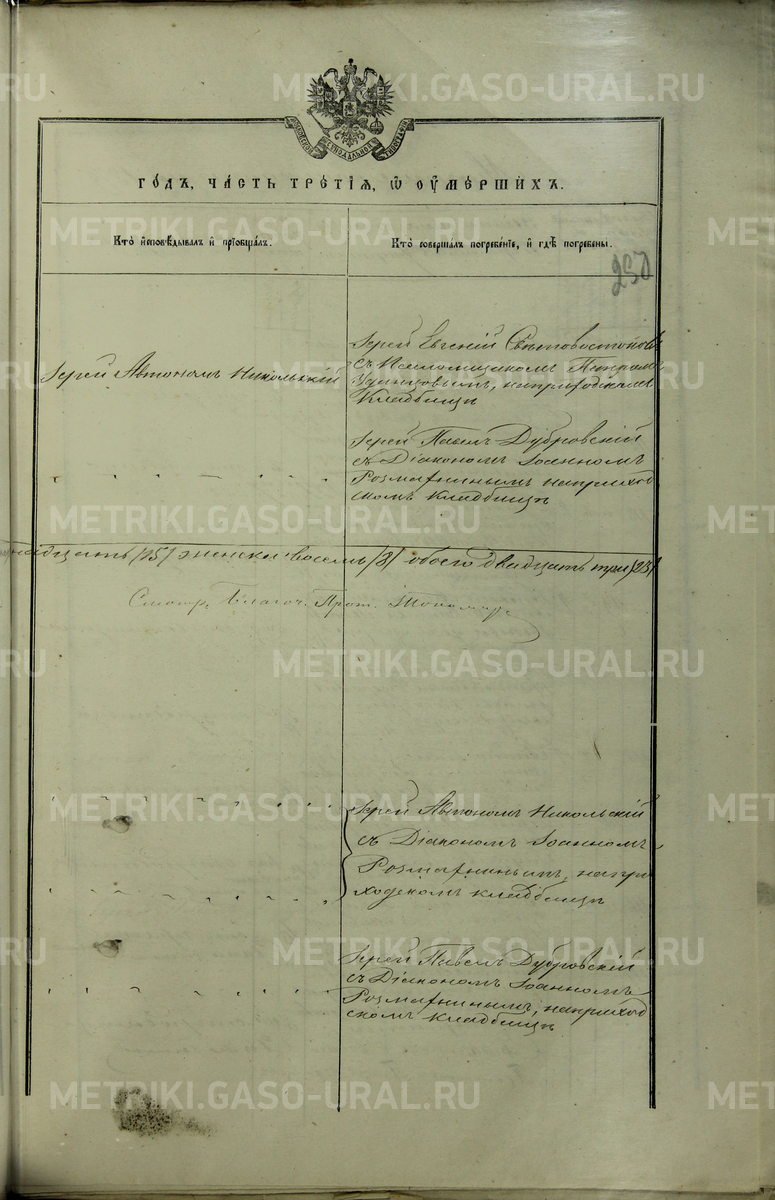 METRIKI.GASO-URAL.RU
го́дъ, ча́сть тре́тїѧ, ѡ҆ ᲂу҆ме́ршихъ.
Кто̀ и҆сповѣ́дывалъ и҆ прїѡбща́лъ.
Кто̀ соверша́лъ погребе́нїе, и҆ гдѣ̀ погребе́ны.
250
Іерей Автономъ Никольскій
Іерей Евгеній
съ Псаломщикомъ Петромъ
на приходскомъ
кладбищѣ
Іерей Павелъ Дубровскій
съ Діакономъ Іоанномъ
на приход
скомъ кладбищѣ
надцать /15/ женска восемь /8/ обоего двадцать три /23/
Смотр. Благоч. Прот.
Іерей Автономъ Никольскій
съ Діакономъ Іоанномъ
на при
ходскомъ кладбищѣ
Іерей Павелъ Дубровскій
съ Діакономъ Іоанномъ
на приход
скомъ кладбищѣ